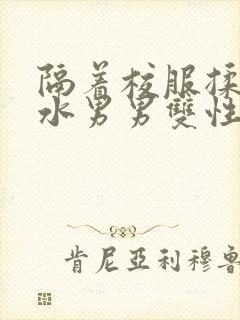 隔着校服揉
水男男雙性
肯尼亞利穆魯